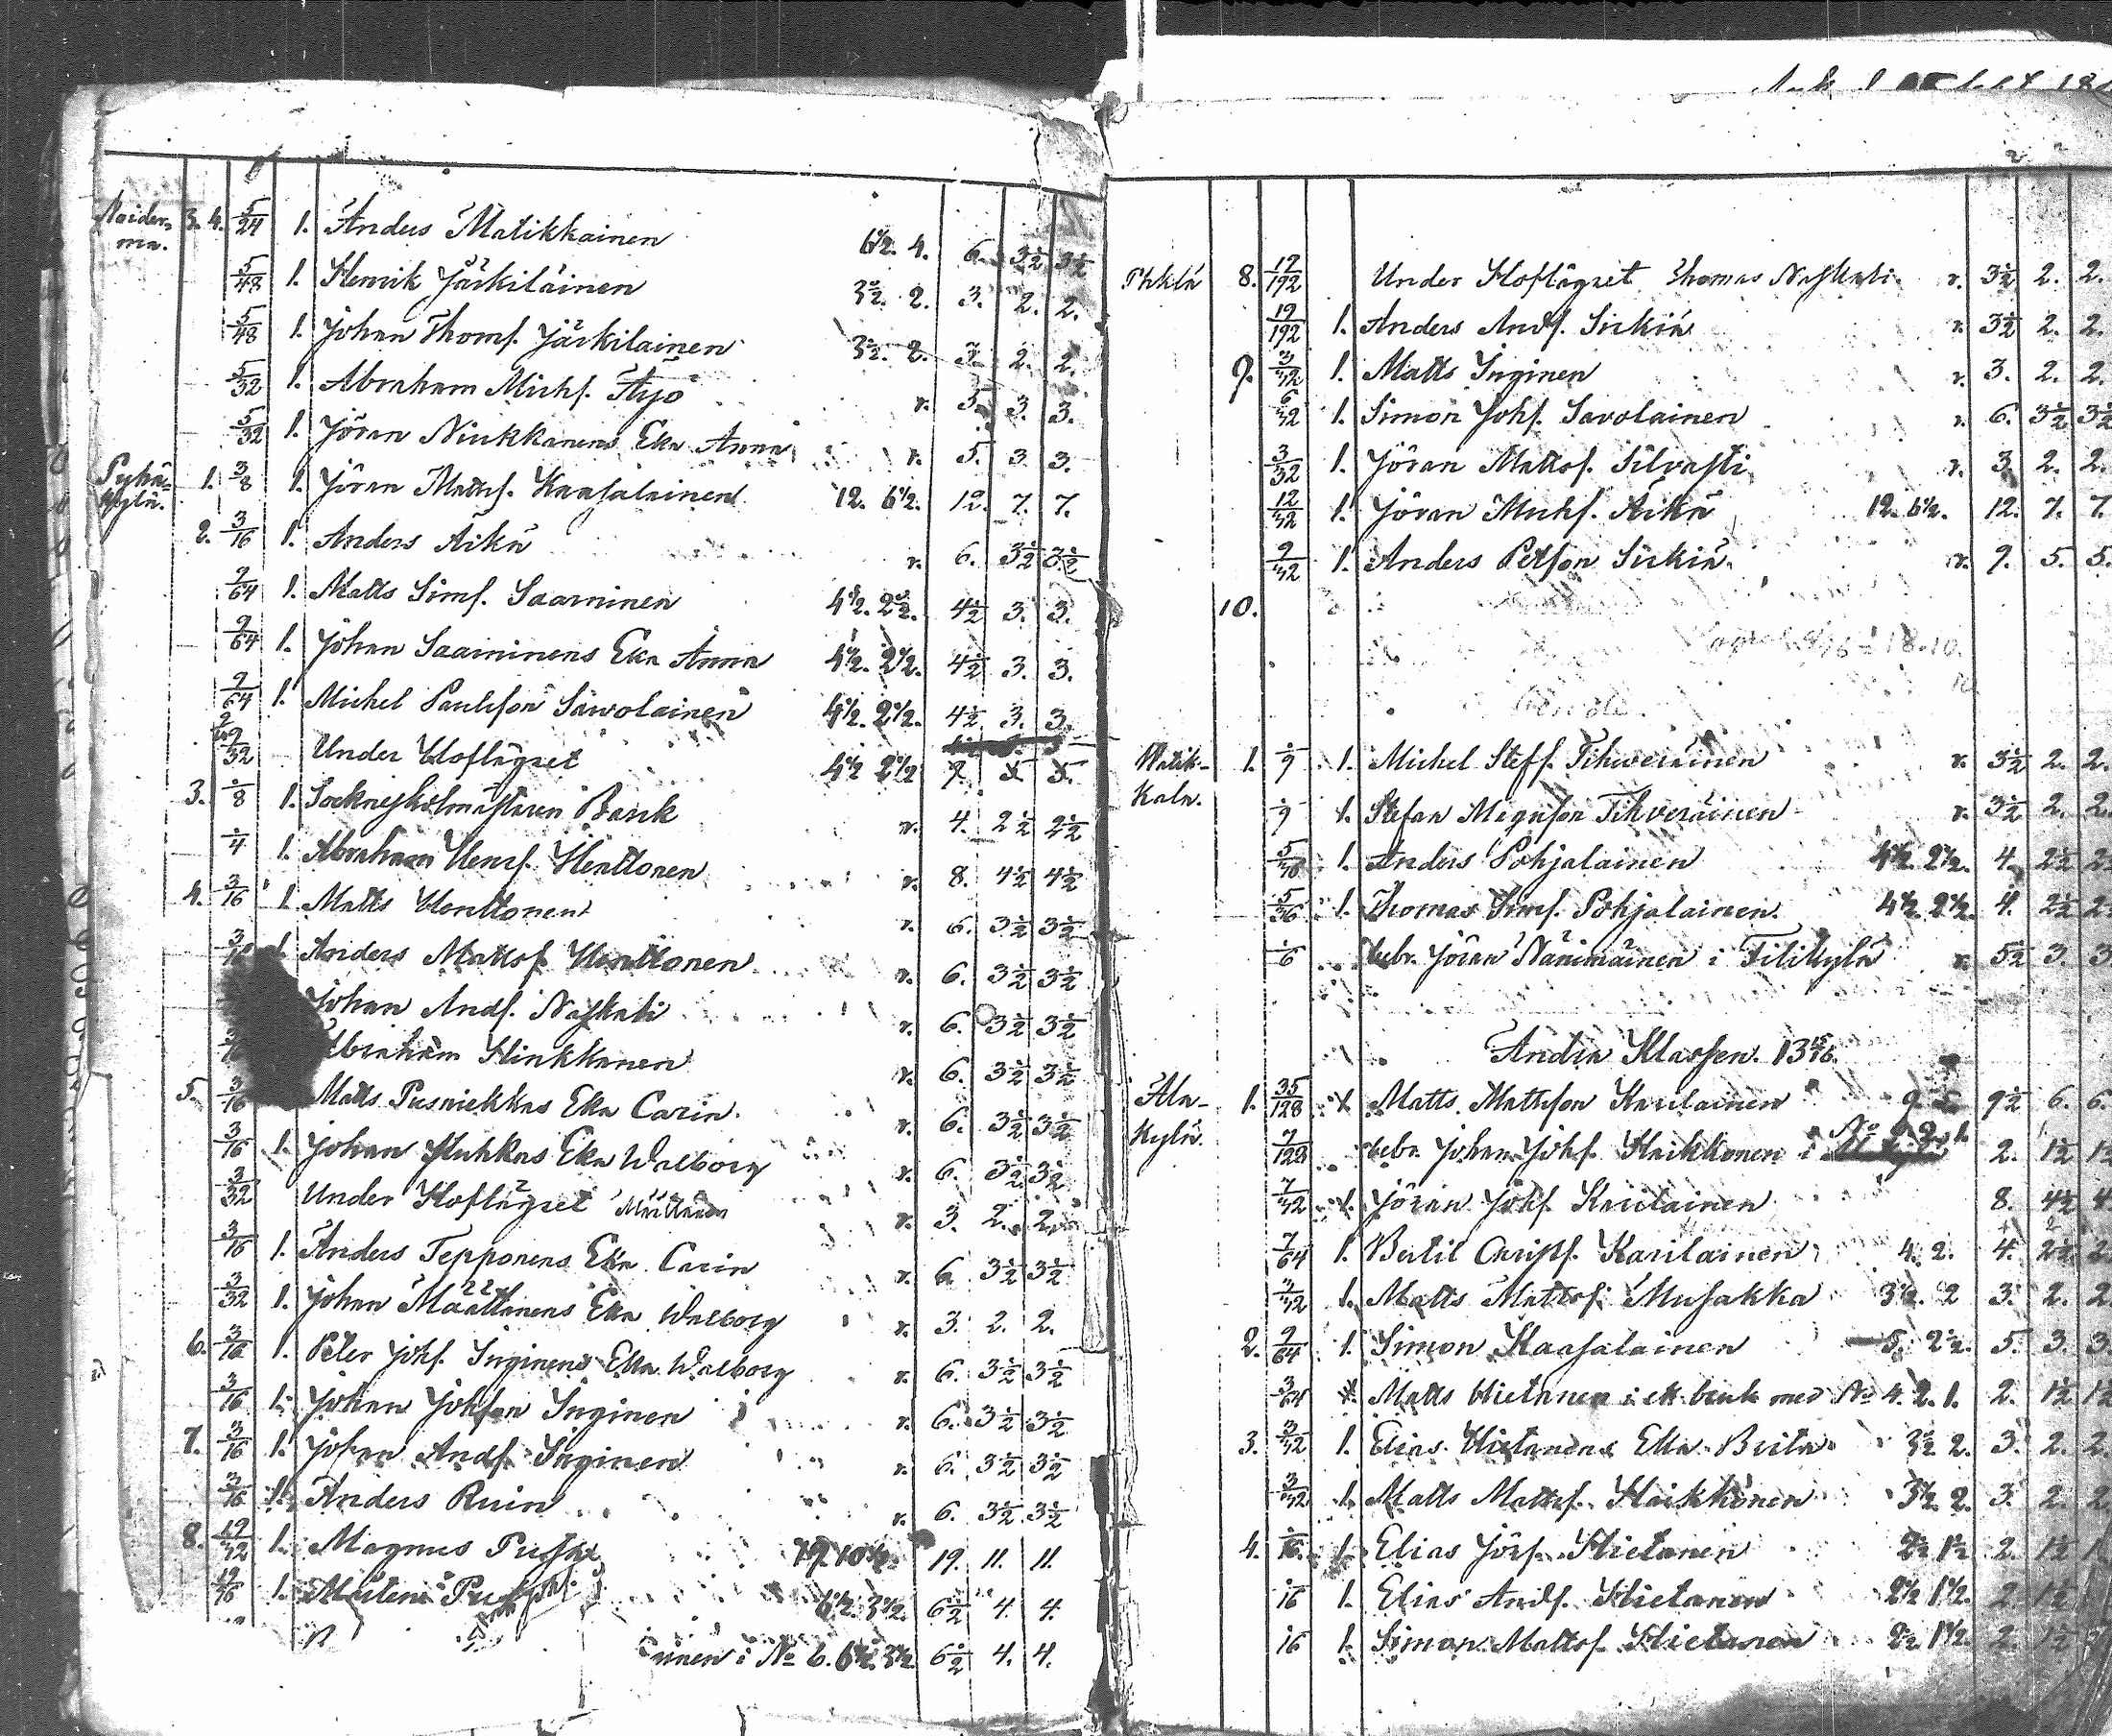 Naider-
ma. 3. 4. 5/24 1. Anders Matikkainen 6½. 4. 6. 3½ 3½
5/48 1. Henrik Järkiläinen 3½. 2. 3. 2. 2.
5/48 1. Johan Thoms. Järkilainen 3½. 2. 3. 2. 2.
5/32 1. Abraham Michs. Äijö r. 5. 3. 3.
5/32 1. Jöran Niukkanens Eka Anna r. 5. 3. 3.
Pyhä-
kylä. 1. 3/8 1. Jöran Matts. Kaasalainen 12. 6½. 12. 7. 7.
2. 3/16 1. Anders Äikä r. 6. 3½ 3½
9/64 1. Matts Sims. Saarninen 4½. 2½. 4½ 3. 3.
9/64 1. Johan Saarninens Eka Anna 4½. 2½. 4½ 3. 3.
9/64 1. Michel Paulsson Sawolainen 4½. 2½. 4½ 3. 3.
9/32 Under Hoflägret 4½ 2½ 9. 5 5.
3. 1/8 1. Sockneskolmästaren Bank r. 4. 2½ 2½
1/4 1. Abraham Henrs. Henttonen r. 8. 4½ 4½
4. 3/16 1. Matts Henttonen r. 6. 3½ 3½
1. Anders Mattss. Henttonen r. 6. 3½ 3½
Johan Ands. Naskali r. 6. 3½ 3½
Abraham Hinkkanen r. 6. 3½ 3½
5. 3/16 Matts Pusniekkas Eka Carin r. 6. 3½ 3½
3/16 1. Johan Huhkas Eka Walborg r. 6. 3½ 3½
3/32 Under Hoflägret Määttänen r. 3. 2. 2.
3/16 1. Anders Tepponens Eka Carin r. 6. 3½ 3½
3/32 1. Johan Määttänens Eka Walborg r. 3. 2. 2.
6. 3/16 1. Peter Johs. Inginens Eka Walborg r. 6. 3½ 3½
3/16 1. Johan Johsson Inginen r. 6. 3½ 3½
7. 3/16 1. Johan Ands. Inginen r. 6. 3½ 3½
3/16 1. Anders Ruin r. 6. 3½ 3½
8. 19/32 1. Magnus 19. 10½. 19. 11. 11.
1. Mårten 6½. 3½. 6½ 4. 4.
i No 6. 6½. 3½. 6½ 4. 4.
8. 19/192 Under Hoflägret Thomas Naskali r. 3½ 2. 2.
19/192 1. Anders Ands. Sirkiä r. 3½ 2. 2.
9. 3/32 1. Matts Inginen r. 3. 2. 2.
6/32 1. Simon Johs. Savolainen r. 6. 3½ 3½
3/32 1. Jöran Mattss. Silvasti r. 3. 2. 2.
12/32 1. Jöran Michs. Äikä 12. 6½. 12. 7. 7.
9/32 1. Anders Petsson Sirkiä r. 9. 5. 5.
10.
Matik-
kala. 1. 1/9 1. Michel Steff. Tihveräinen r. 3½ 2. 2.
1/9 1. Stefan Magnsson Tihveräinen r. 3½ 2. 2.
1. Anders Pohjalainen 4½. 2½. 4. 2½ 2
5/36 1. Thomas Sims. Pohjalainen 4½. 2½. 4. 2½ 2
1/6 Jöran Nänimäinen i Tilikylä r. 5½ 3. 3
Andra Klassen
Ala-
Kylä. 1. 35/128 1. Matts Mattsson Karilainen 9. 5. 9½ 6. 6.
7/128 Johan Johs. Haikkonen i 2. 1½ 1½
7/32 1. Jöran Johs. Karilainen 8. 4½ 4
7/64 1. Bertil Christs. Karilainen 4. 2. 4. 2½ 2
3/32 1. Matts Mattss. Musakka 3½. 2 3. 2. 2.
2. 9/64 1. Simon Kaasalainen 5. 2½. 5. 3. 3
3/64 1. Matts Hietanen i ett bruk med No 4. 2. 1. 2. 1½ 1½
3. 3/32 1. Elias Hietanens Eka Brita 3½ 2. 3. 2. 2
3/32 1. Matts Mattss. Haikkonen 3½ 2. 3. 2. 2
4. 1/16 1. Elias Jörs. Hietanen 2½ 1½ 2. 1½ 1
1/16 1. Elias Ands. Hietanen 2½ 1½. 2. 1½
1/16 1. Simon Mattss. Hietanen 2½ 1½. 2. 1½